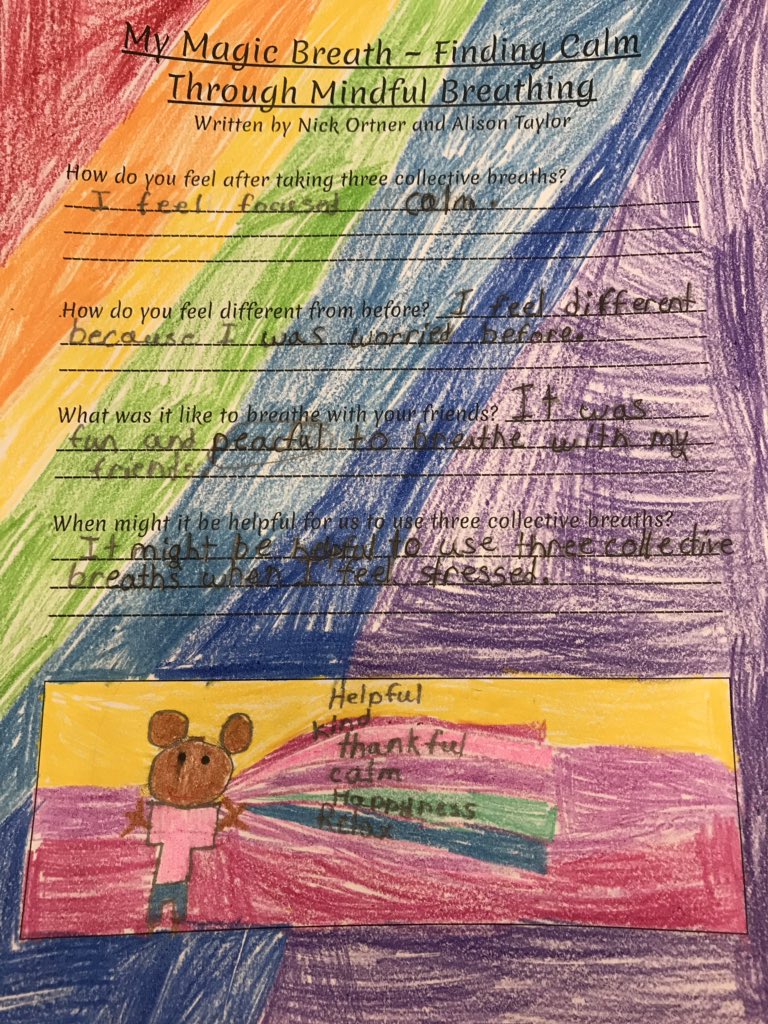 My Magic Breath ~ Finding Calm
Through Mindful Breathing
Written by Nick Ortner and Alison Taylor
How do you feel after taking three collective breaths?
I feel focused calm.
How do you feel different from before? I feel different
because I was worried before.
What was it like to breathe with your friends? It was
fun and peacful to breathe with my
friends.
When might it be helpful for us to use three collective breaths?
It might be helpful to use three collective
breaths when I feel stressed.
Helpful
kind
thankful
calm
Happyness
Relax